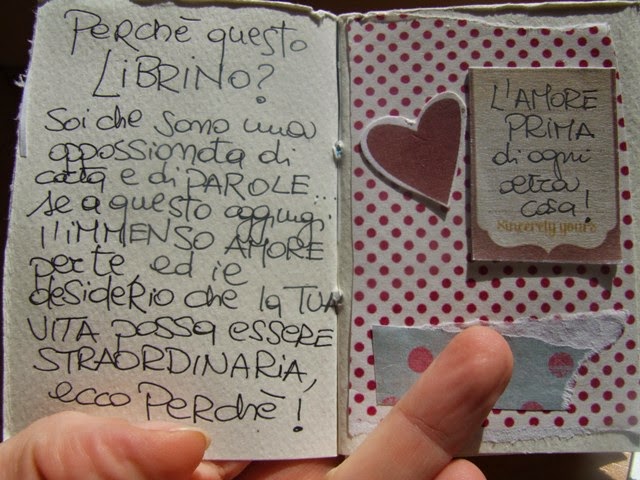 Perchè questo
LIBRINO?
Sai che sono una
appassionata di
carta e di PAROLE
se a questo aggiungi
l'IMMENSO AMORE
per te, ed il
desiderio che la TUA
VITA possa essere
STRAORDINARIA,
ecco Perchè!
L'AMORE
PRIMA
di ogni
altra
cosa!
Sincerely yours